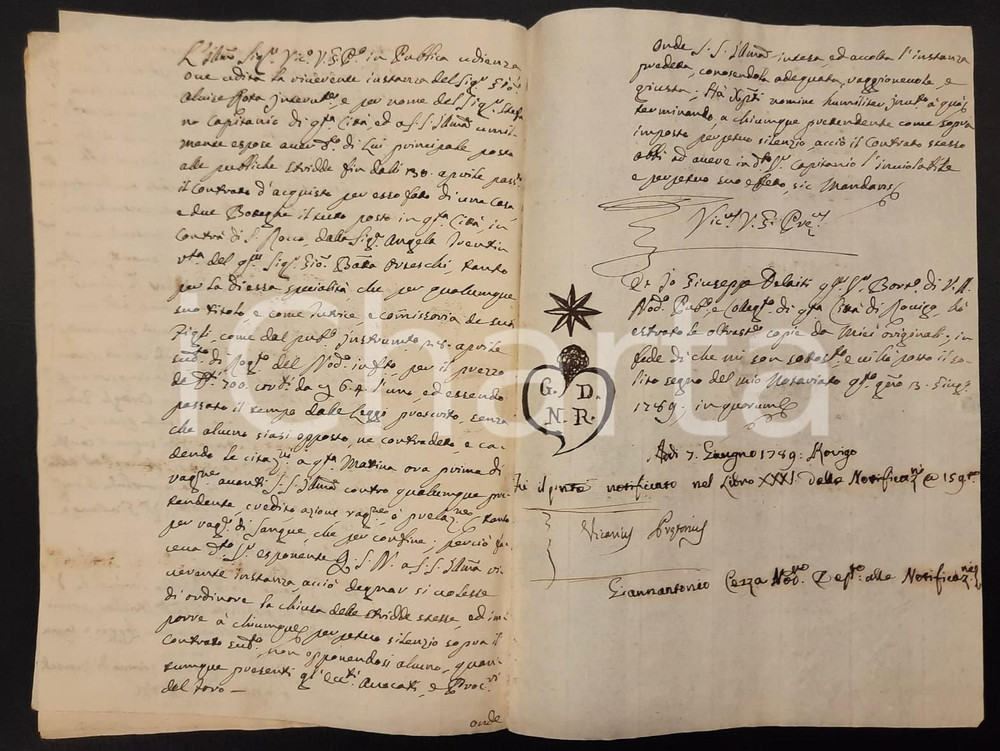 L'Illmo Sigr Vico V. Gio in Publica udienza
ove udita la riverente instanza del Sigr Gio:
Alvise Rota Interve, e per nome del Sigr
no Capitanio di qta Città, ed a S. S. Illma umil
mente espose aver do di Lui principale posto
alle publiche stridde fin dalli 130. aprile passo
il Contrato d'acquisto per esso fato di una Casa
e due Boteghe il tutto posto in qta Città, in
Contrà di S. Rocco, dalla Siga Angela
vta del qm Sigr Gio: Batta tanto
per la di essa specialità, che per qualunque
suo titolo, e come Tutrice e Commissaria de suoi
Figli, come dal pubo Instrumento 28. aprile
sudo di Rogto del Nodo infto, per il prezzo
de Dti 700. corti da 6.4 l'uno, ed essendo
passato il tempo dalle Leggi prescrito, senza
che alcuno siasi opposto, ne contradeto, e ca
dendo le citazni a qta Matina ora prima di
avanti S. S. Illma contro qualunque pre
tendente, credito azione ragne, ò tanto
per ragne di sangue, che per confine; perciò fa
ceva do Sr esponente S. S. Illma ri
verente instanza acciò degnar si volesse
di ordinare la chiusa delle stridde stesse, ed im
porre à chiunque perpetuo silenzio sopra il
Contrato sudo, non opponendosi alcuno, quan
tunque presenti gl'ecctti Avocati, e Procri
del Foro —
onde
Onde S. S. Illma intesa, ed accolta l'instanza
predeta, conoscendola adeguata, raggionevole, e
giusta; Hà Xpti nomine humiliter invto à quo
terminando, a chiunque pretendente come sopra
imposto perpetuo silenzio, acciò il Contrato stesso
abbi ad avere in do Sr Capitanio l'inviolabile
e perpetuo suo effeto, sic Mandavit
Vicus V. G. Prus
G. D.
N. R.
Et Io Giuseppe Delaiti qm Sr Borto di V. A.
Nodo Pubo, e Collegto di qta Città di Rovigo hò
estrato le oltrascte copie da Miei originali, in
fede di che mi son sotoscto, e vi hò posto il so
lito segno del mio Notariato qto gno 13. Giugo
1789. in quorum
Adi 7. Giugno 1789. Rovigo
Fu il pnte notificato nel Libro XXXI. delle Notificazni @ 159 to
Vicarius Pretorius
Giannantonio Cezza Nodo Depto alle Notificazni
iCharta